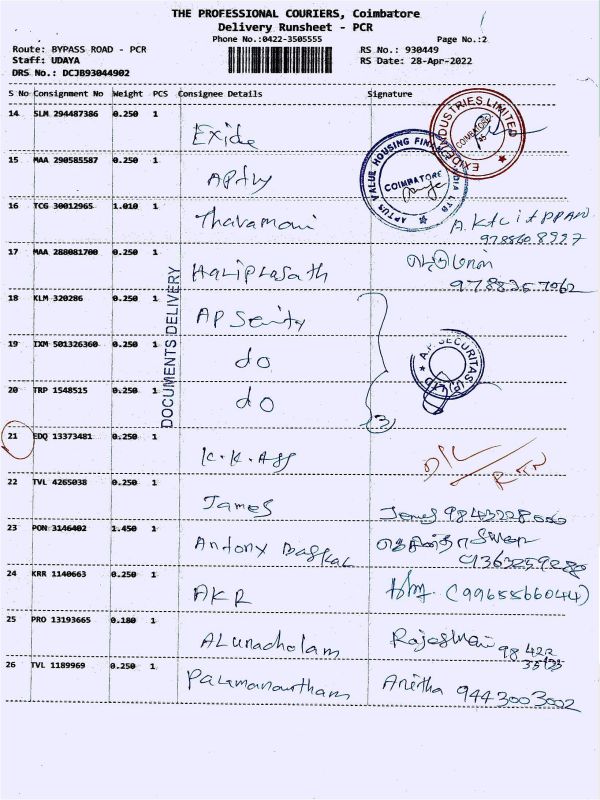 THE PROFESSIONAL COURIERS, Coimbatore
Delivery Runsheet - PCR
Phone No.:0422-3505555
Page No.:2
Route: BYPASS ROAD - PCR
RS No.: 930449
Staff: UDAYA
RS Date: 28-Apr-2022
DRS No.: DCJB93044902
S No Consignment No Weight PCS Consignee Details Signature
14 SLM 294487386 0.250 1 Exide
EXIDE INDUSTRIES LIMITED COIMBATORE
15 MAA 290585587 0.250 1
APTUS VALUE HOUSING FINANCE INDIA LTD COIMBATORE
16 TCG 30012965 1.010 1 Tharamani
9788608997
17 MAA 288081700 0.250 1 Hariprasath
9788357062
DOCUMENTS DELIVERY
18 KLM 320286 0.250 1 AP
19 IXM 501326360 0.250 1 do
A.P. SECURITAS (P) LTD
20 TRP 1548515 0.250 1 do
(3)
21 EDQ 13373481 0.250 1 K.K. Ass
22 TVL 4265038 0.250 1 James James
23 PON 3146402 1.450 1 Antony Baskar
9363259280
24 KRR 1140663 0.250 1 AKR (9965566044)
25 PRO 13193665 0.180 1 Arunachalam
98422
26 TVL 1189969 0.250 1 Anitha 9443003002